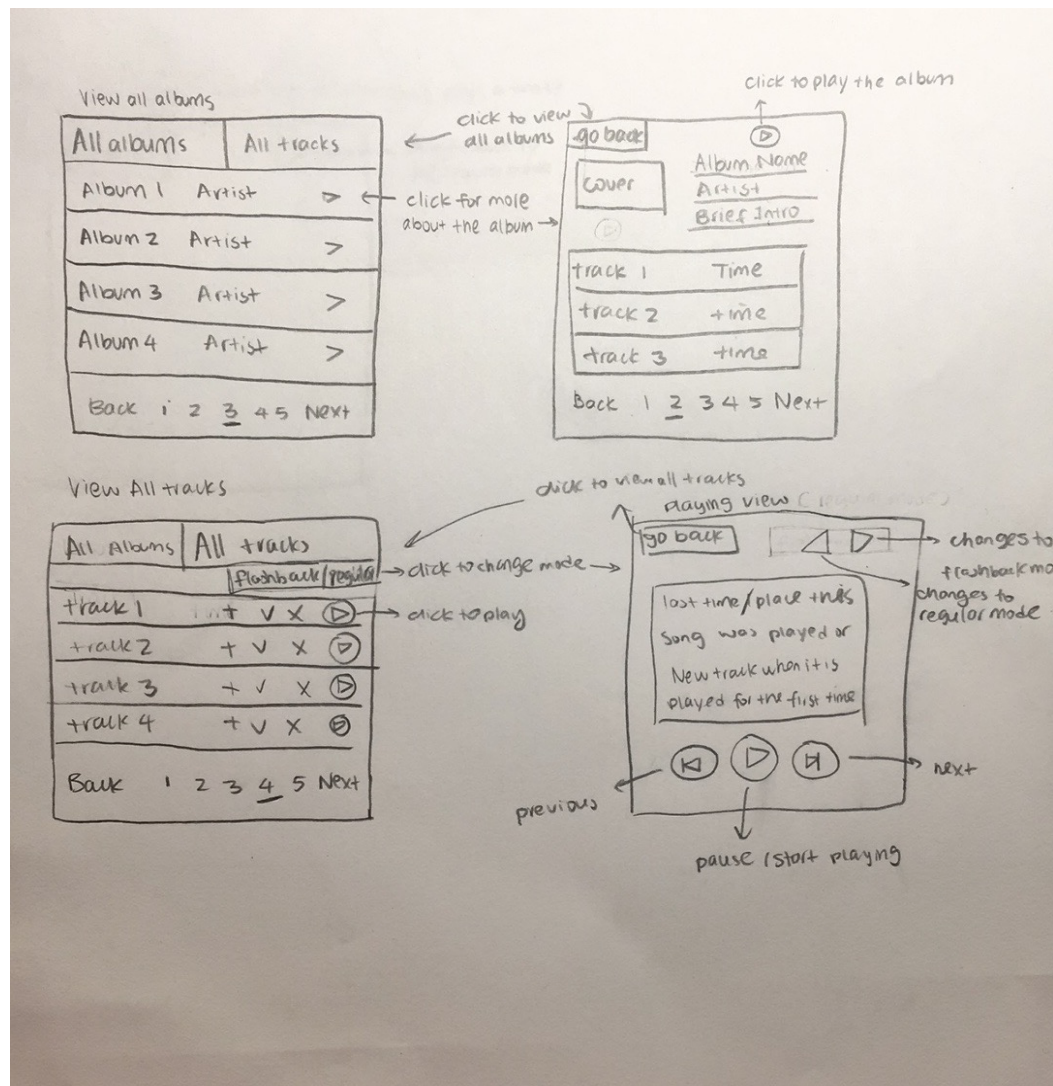 View all albums
All albums All tracks
Album 1 Artist >
Album 2 Artist >
Album 3 Artist >
Album 4 Artist >
Back 1 2 3 4 5 Next
click to view
all albums
click for more
about the album
click to play the album
go back
Cover
Album Name
Artist
Brief Intro
track 1 Time
track 2 time
track 3 time
Back 1 2 3 4 5 Next
View All tracks
All Albums All tracks
flashback/regular
track 1 + v x
track 2 + v x
track 3 + v x
track 4 + v x
Back 1 2 3 4 5 Next
click to view all tracks
click to change mode
click to play
playing view
go back
changes to
flashback mo
changes to
regular mode
last time/place this
song was played or
New track when it is
played for the first time
previous
next
pause / start playing